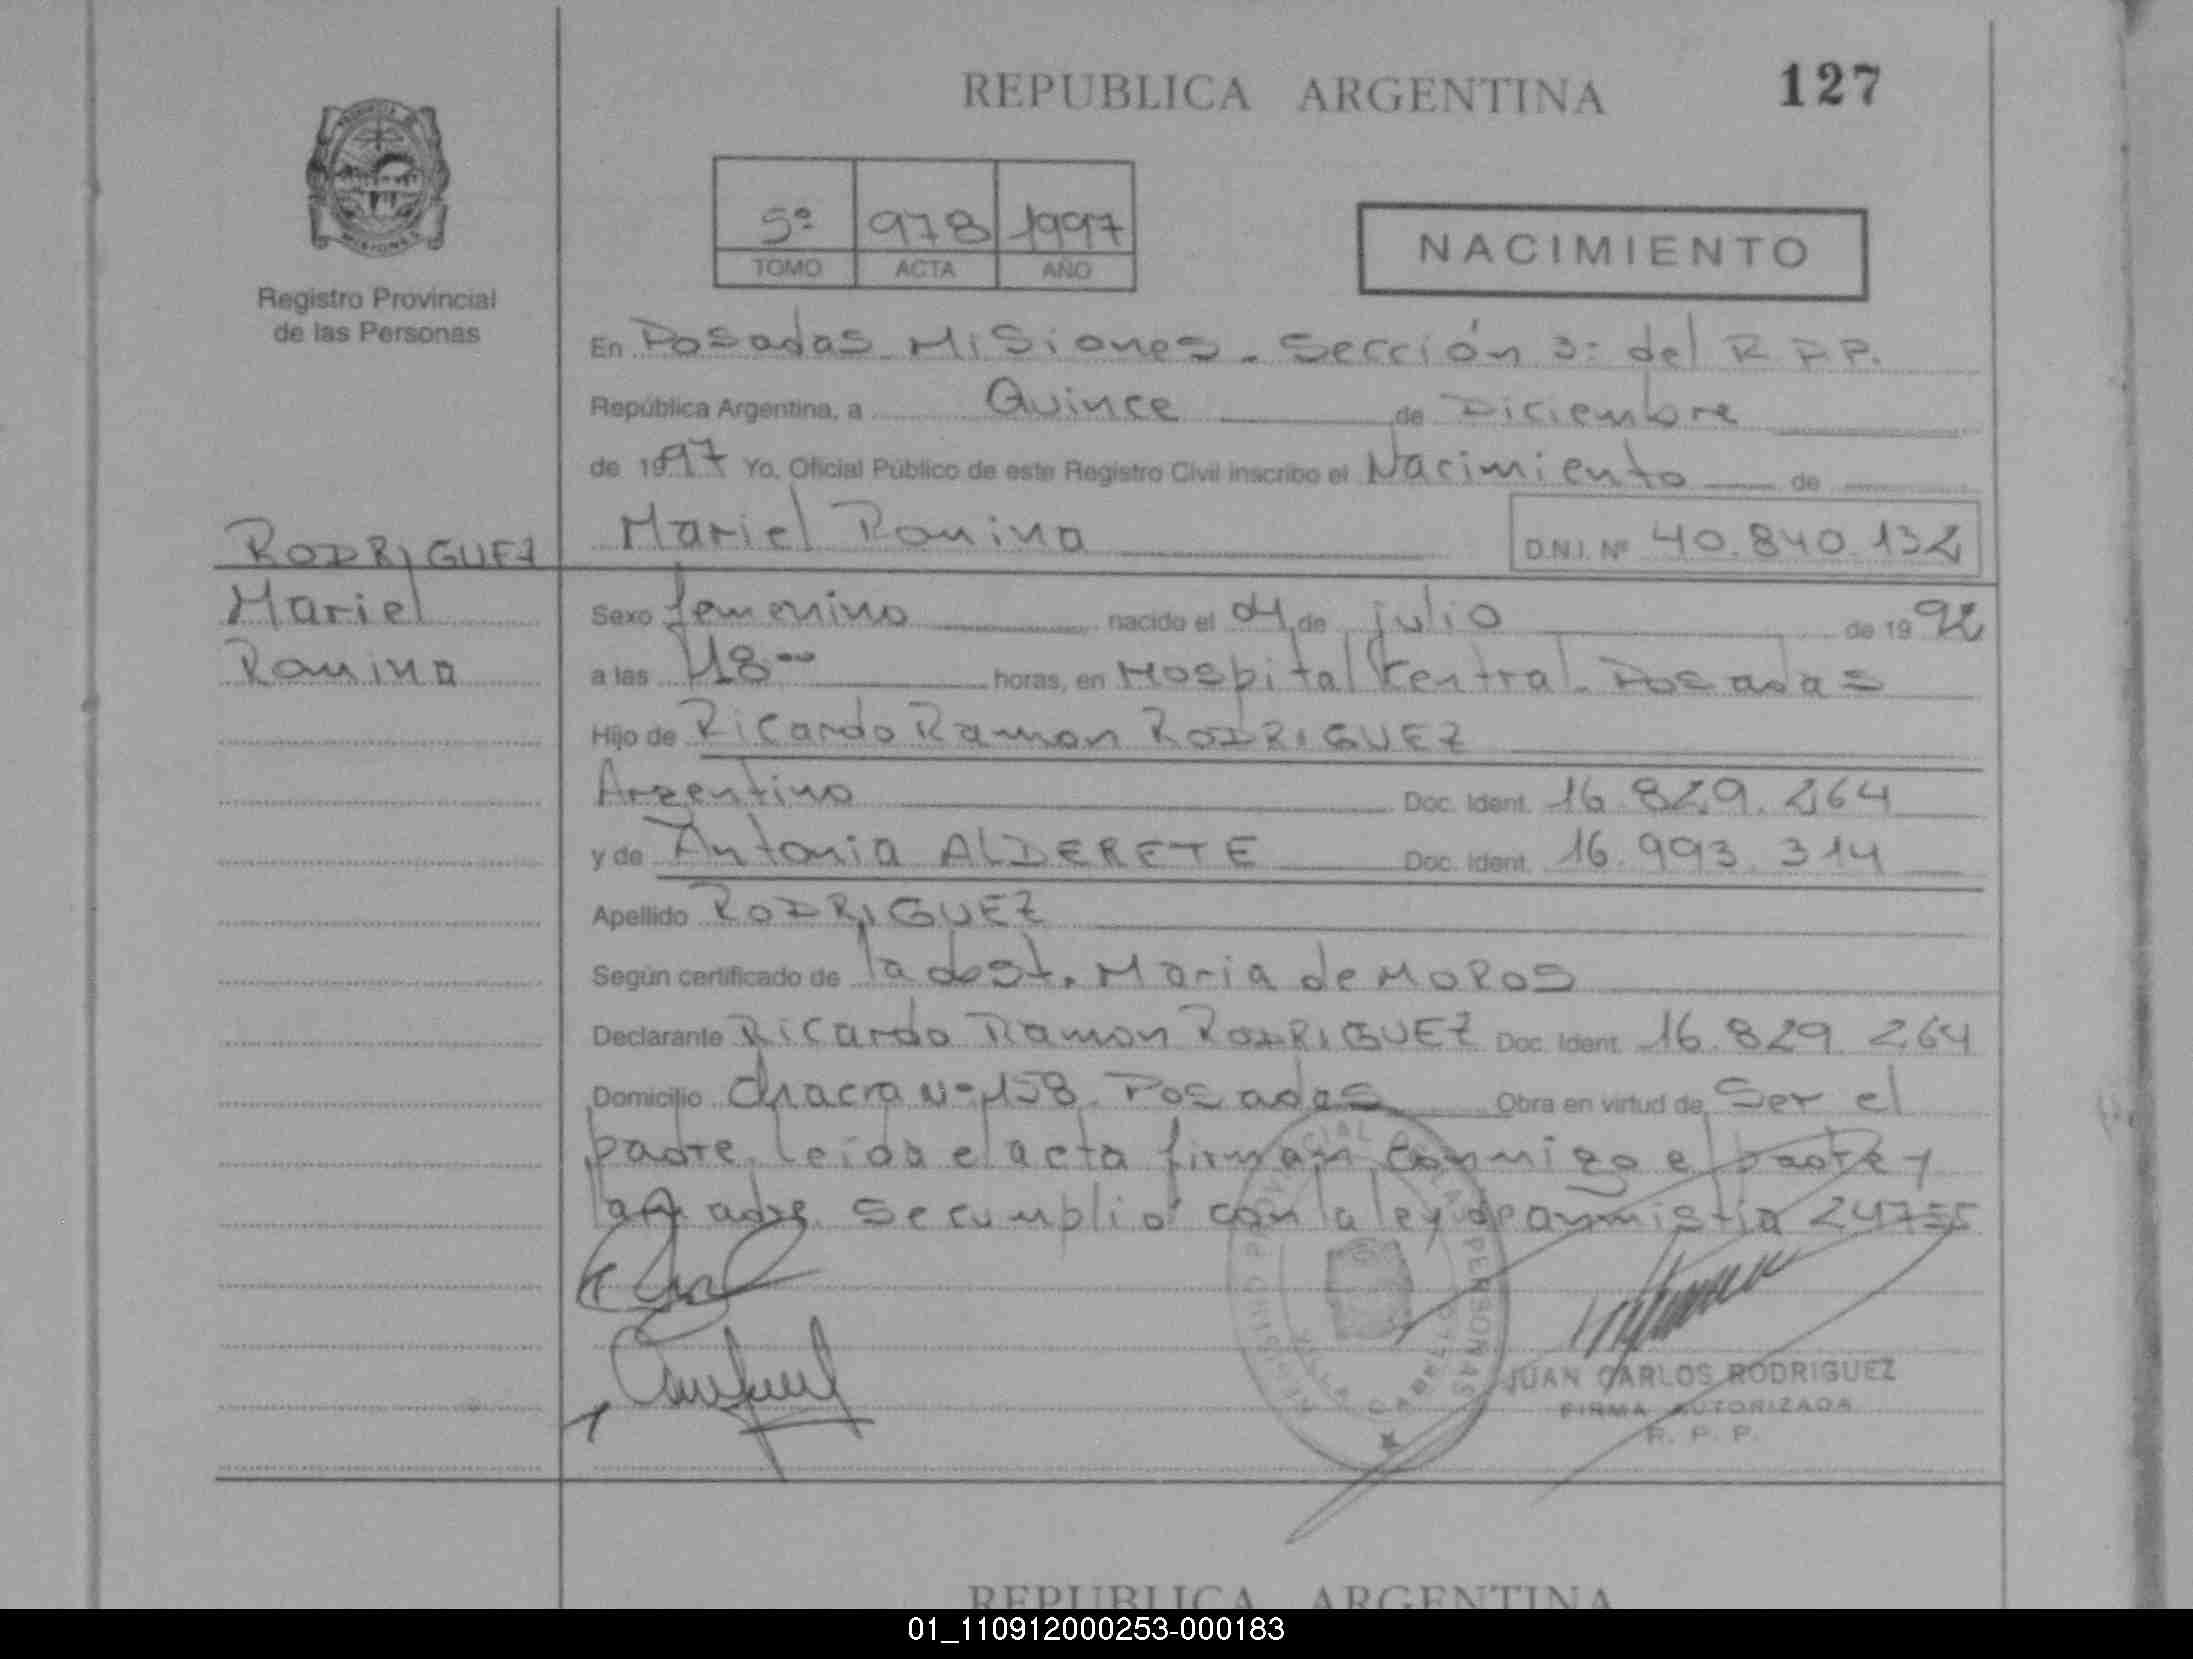 REPUBLICA ARGENTINA 127
5º 978 1997
TOMO ACTA AÑO
NACIMIENTO
MISIONES
Registro Provincial
de las Personas
En Posadas Misiones. Sección 3: del R.P.P.
República Argentina, a Quince de Diciembre
de 1997 Yo, Oficial Público de este Registro Civil inscribo el Nacimiento de
RODRIGUEZ Mariel Romina D.N.I. Nº 40.840.132
Mariel Sexo femenino nacido el 04 de julio de 1992
Romina a las 18 horas, en Hospital Central. Posadas
Hijo de Ricardo Ramon RODRIGUEZ
Argentino Doc. Ident. 16.829.264
y de Antonia ALDERETE Doc. Ident. 16.993.314
Apellido RODRIGUEZ
Según certificado de la obst. Maria de MOROS
Declarante Ricardo Ramon RODRIGUEZ Doc. Ident. 16.829.264
Domicilio chacra Nº 158. Posadas Obra en virtud de Ser el
padre. leida el acta firman conmigo el padre y
la madre. Se cumplió con la ley de amnistia 24755
REGISTRO PROVINCIAL DE LAS PERSONAS
VILLA CABELLO
JUAN CARLOS RODRIGUEZ
FIRMA AUTORIZADA
R. P. P.
REPUBLICA ARGENTINA
01_110912000253-000183